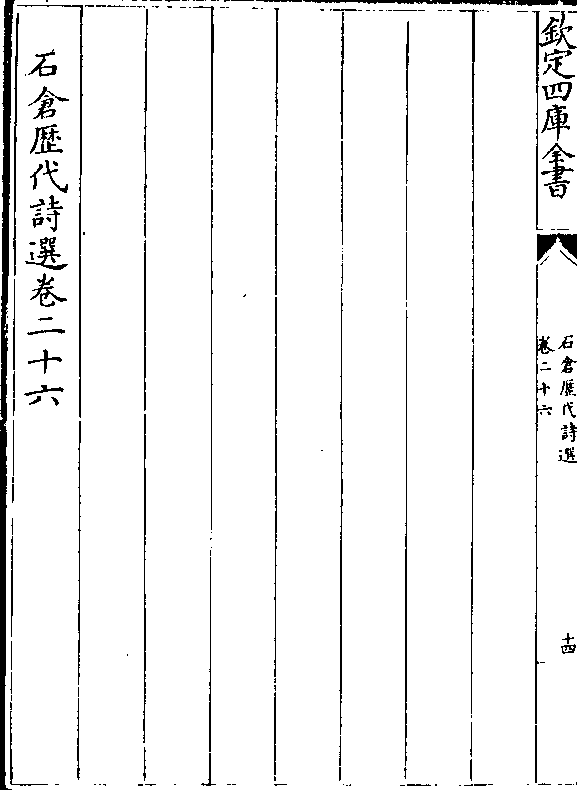 欽定四庫全書
石倉歷代詩選
卷二十六
十四
石倉歷代詩選卷二十六